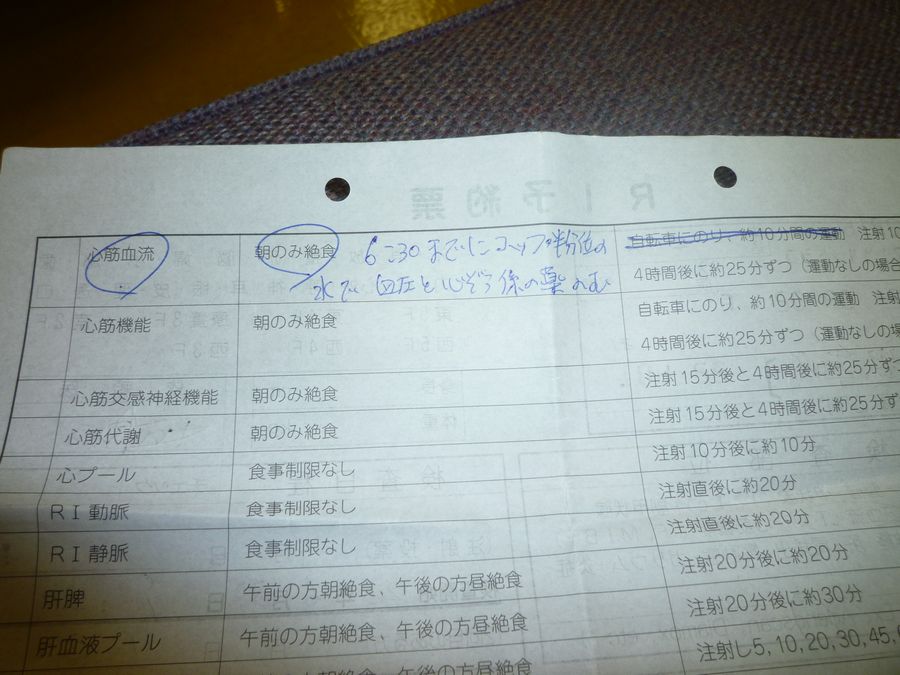 心筋血流 朝のみ絶食 6:30までにコップ半分位の 自転車にのり、約10分間の運動 注射10
水で 血圧と心ぞう係の薬のむ 4時間後に約25分ずつ（運動なしの場合
心筋機能 朝のみ絶食 自転車にのり、約10分間の運動 注射
4時間後に約25分ずつ（運動なしの場
心筋交感神経機能 朝のみ絶食 注射15分後と4時間後に約25分ずつ
心筋代謝 朝のみ絶食 注射15分後と4時間後に約25分ず
心プール 食事制限なし 注射10分後に約10分
RI動脈 食事制限なし 注射直後に約20分
RI静脈 食事制限なし 注射直後に約20分
肝脾 午前の方朝絶食、午後の方昼絶食 注射20分後に約20分
肝血液プール 午前の方朝絶食、午後の方昼絶食 注射20分後に約30分
午後の方昼絶食 注射し5, 10, 20, 30, 45, 6
RI予約票